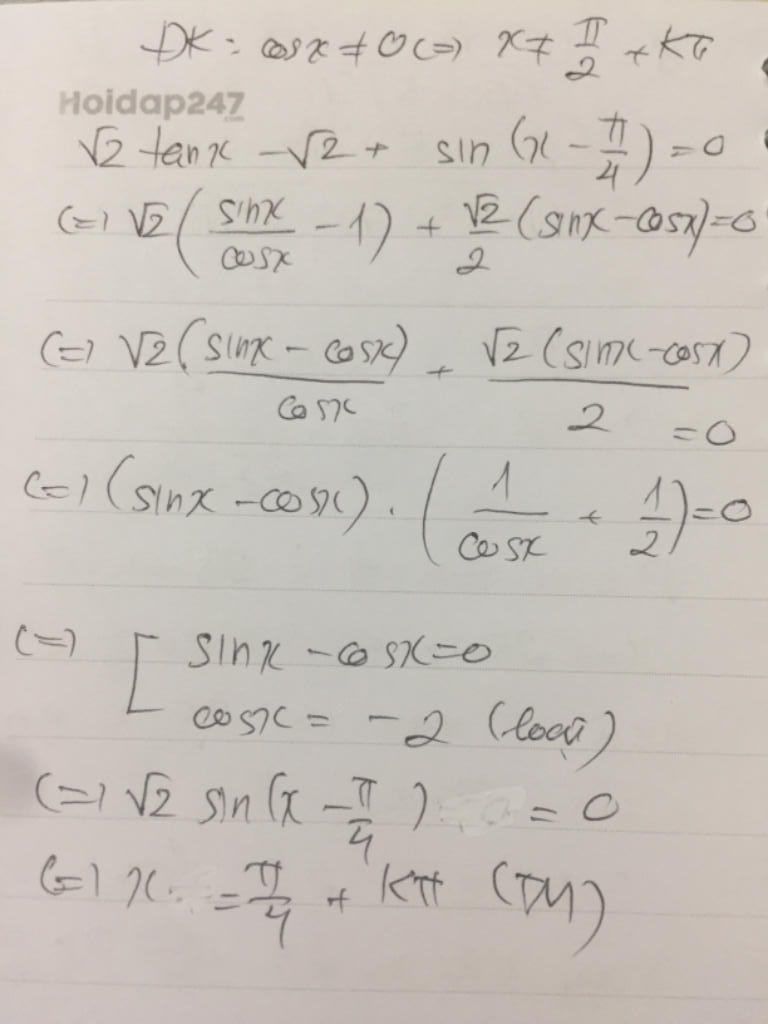 ĐK: cosx ≠ 0 (=) x ≠ π/2 + kπ
Hoidap247
.com
√2 tanx - √2 + sin (x - π/4) = 0
(=) √2 ( sinx/cosx - 1) + √2/2 (sinx - cosx) = 0
(=) √2 (sinx - cosx)/cosx + √2 (sinx - cosx)/2 = 0
(=) (sinx - cosx) . ( 1/cosx + 1/2 ) = 0
(=) [ sinx - cosx = 0
cosx = -2 (loại)
(=) √2 sin (x - π/4) = 0
(=) x = π/4 + kπ (TM)